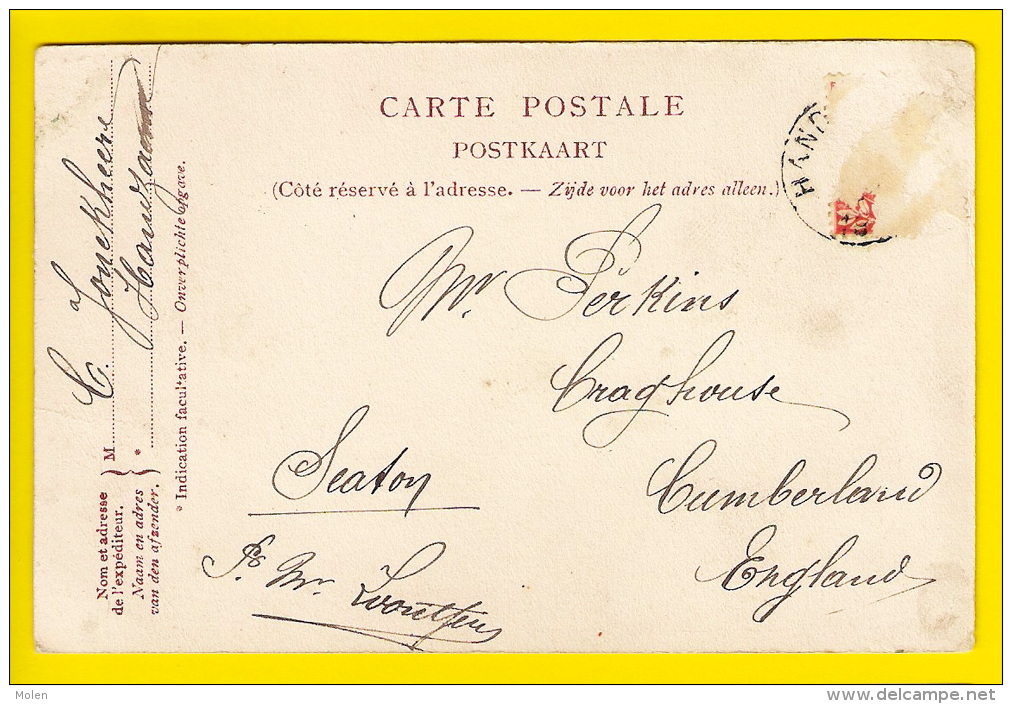 CARTE POSTALE
POSTKAART
(Côté réservé à l'adresse. — Zijde voor het adres alleen.)
HAND
Mr. Perkins
Craghouse
Seaton
Cumberland
England
Mr.
C. Jonckheere
Nom et adresse
de l'expéditeur.
Naam en adres
van den afzender.
M
*
* Indication facultative. — Onverplichte opgave.
Molen
delcampe.net